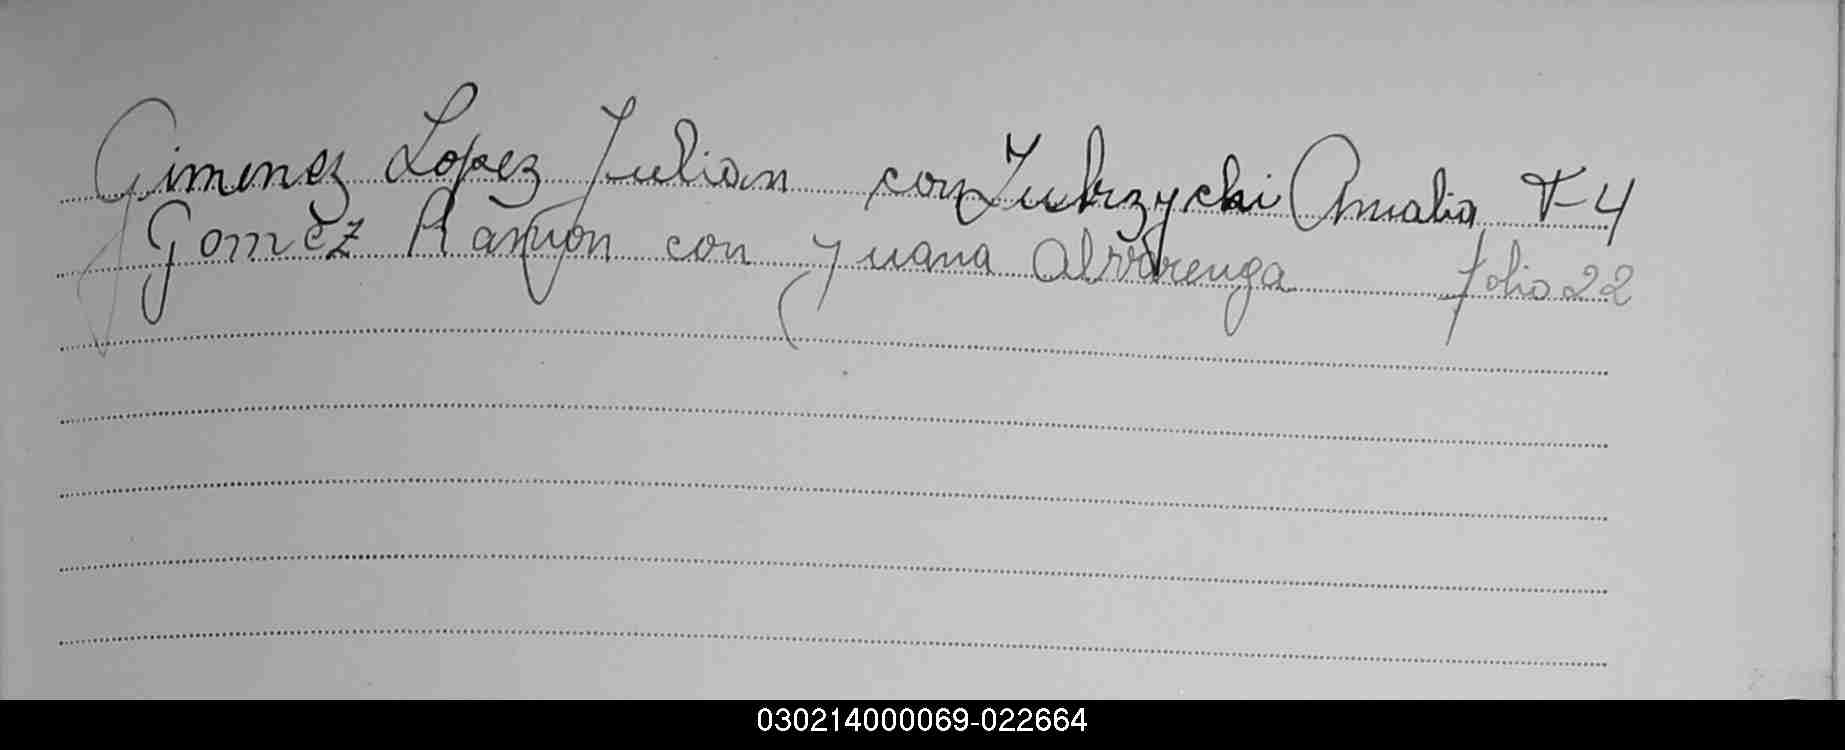 Gimenez Lopez Julian con Zubrzycki Amalia F-4
Gomez Ramón con Juana Alvarenga folio 22
030214000069-022664